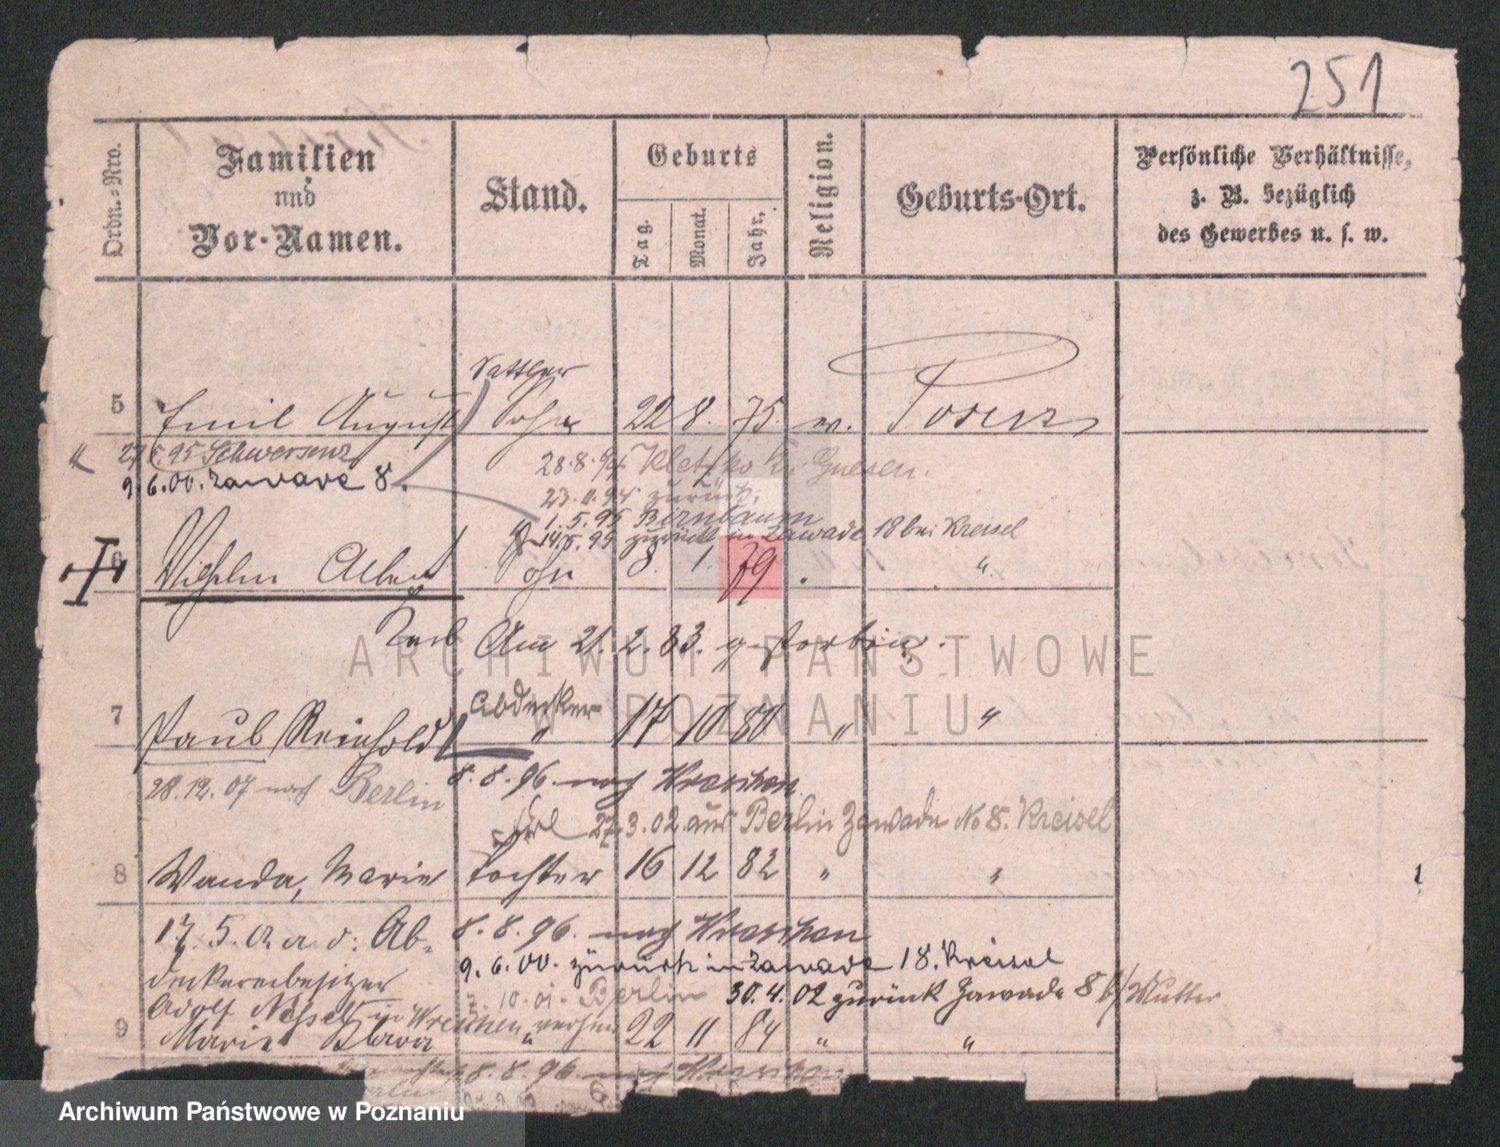 251
Ordn.-Nro.
Familien
und
Vor-Namen.
Stand.
Geburts
Tag.
Monat.
Jahr.
Religion.
Geburts-Ort.
Persönliche Verhältnisse,
z. B. bezüglich
des Gewerbes u. s. w.
Sattler
5 Emil August Sohn 22 8. 75. ev. Posen
5.95 Schwersenz
28.8.94 Kletzko Kr. Gnesen.
9.6.00. Zawade 8.
23.11.94 zurück.
1.5.95 Birnbaum
14.5.95 zurück in Zawade 18 bei Kreisel
6 Wilhelm Albert Sohn 8. 1. 79. "
Karl Am 21.2.83. gestorben.
Abdecker
7 Paul Reinhold " 17 10 80 " "
28.12.07 nach Berlin
8.8.96. nach Wreschen
27.3.02 aus Berlin Zawade No 8. Kreisel
8 Wanda, Marie Tochter 16 12 82 " "
17.5. a. a. d. Ab-
8.8.96. nach Wreschen
deckereibesitzer
9.6.00. zurück in Zawade 18. Kreisel
7.10.01. Berlin 30.4.02 zurück Zawade 8 b/Mutter
Adolf in Wreschen
9 Marie Klara " 22 11 84 " "
8.8.96. nach Wreschen
ARCHIWUM PAŃSTWOWE
W POZNANIU
Archiwum Państwowe w Poznaniu